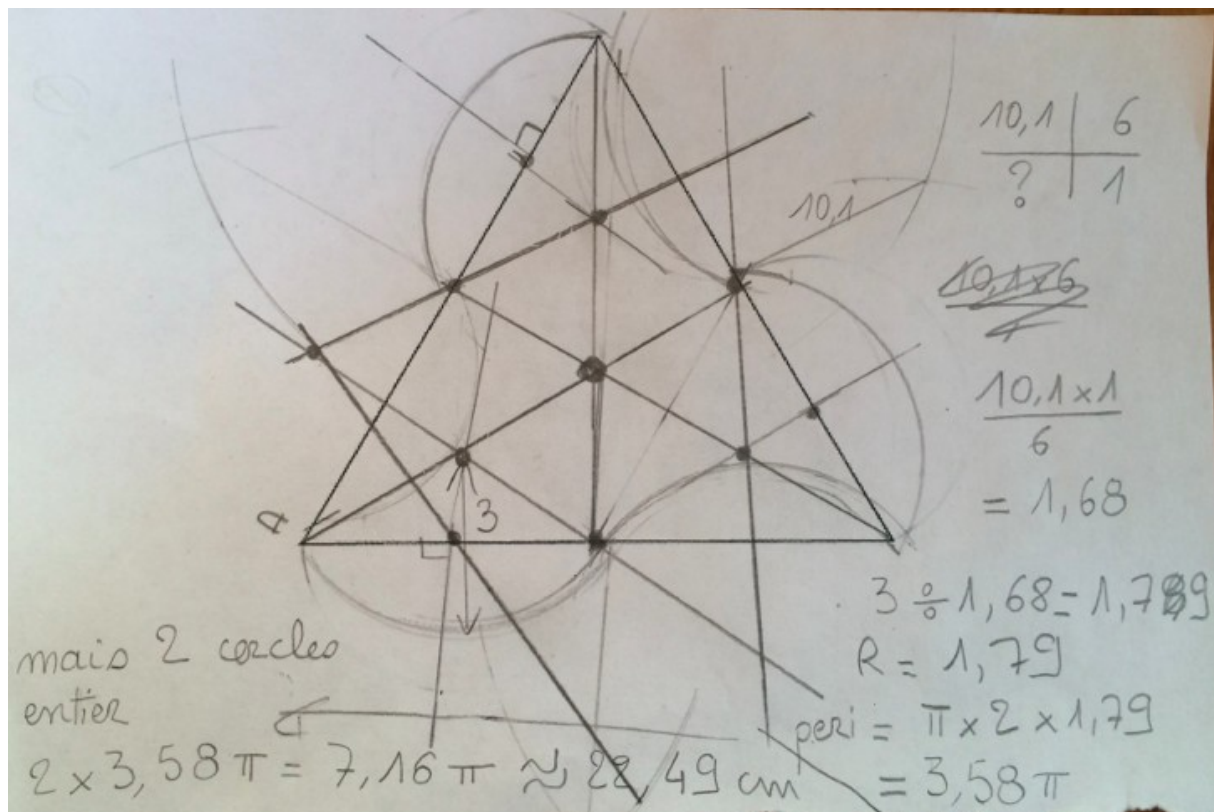 10,1 | 6
? | 1
10,1
10,1×6
10,1×1
6
= 1,68
A
3
3 ÷ 1,68 = 1,789
R = 1,79
peri = π × 2 × 1,79
= 3,58 π
mais 2 cercles
entier
2 × 3,58 π = 7,16 π ≈ 22,49 cm